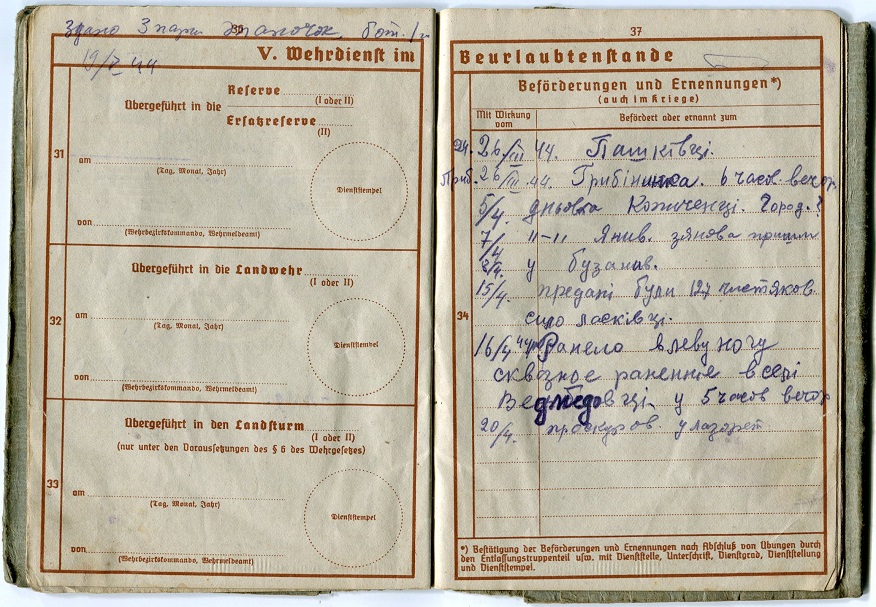 Здано 3 пари
19/V 44
36
V. Wehrdienst im
31
Übergeführt in die
Reserve
(I oder II)
Ersatzreserve
(II)
am
(Tag, Monat, Jahr)
Dienststempel
von
(Wehrbezirkskommando, Wehrmeldeamt)
32
Übergeführt in die Landwehr
(I oder II)
am
(Tag, Monat, Jahr)
Dienststempel
von
(Wehrbezirkskommando, Wehrmeldeamt)
33
Übergeführt in den Landsturm
(I oder II)
(nur unter den Voraussetzungen des § 6 des Wehrgesetzes)
am
(Tag, Monat, Jahr)
Dienststempel
von
(Wehrbezirkskommando, Wehrmeldeamt)
37
Beurlaubtenstande
34
Beförderungen und Ernennungen*)
(auch im Kriege)
Mit Wirkung vom
Befördert oder ernannt zum
26/III 44. Пашківці.
Приб. 26/III 44. 6 часов вечор
5/4. дньовка Город.?
7/4 "—" Янив.
8/4. у бузанав.
15/4. предані були 127 чистяков.
сило ласківці.
16/4 44 Ранело в леву ногу
сквозное раненние в селі
у 5 часов вечор
20/4. проскуров. у лазарет
*) Bestätigung der Beförderungen und Ernennungen nach Abschluß von Übungen durch
den Entlassungstruppenteil usw. mit Dienststelle, Unterschrift, Dienstgrad, Dienststellung
und Dienststempel.